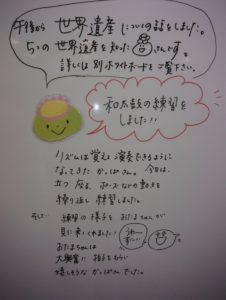 午後から 世界遺産についての話をしました。
5つの世界遺産を知ったさんです。
詳しくは別ホワイトボードをご覧下さい。
和太鼓の練習を
しました!!
リズムは覚え演奏できるように
なってきた かっぱさん。今日は、
立つ 座る、ポーズなどの動きを
繰り返し練習しました。
練習の様子を おたまちゃんが
見に来てくれました!
おたまちゃんは
大興奮に 拍手をもらい
嬉しそうな かっぱさんでした。